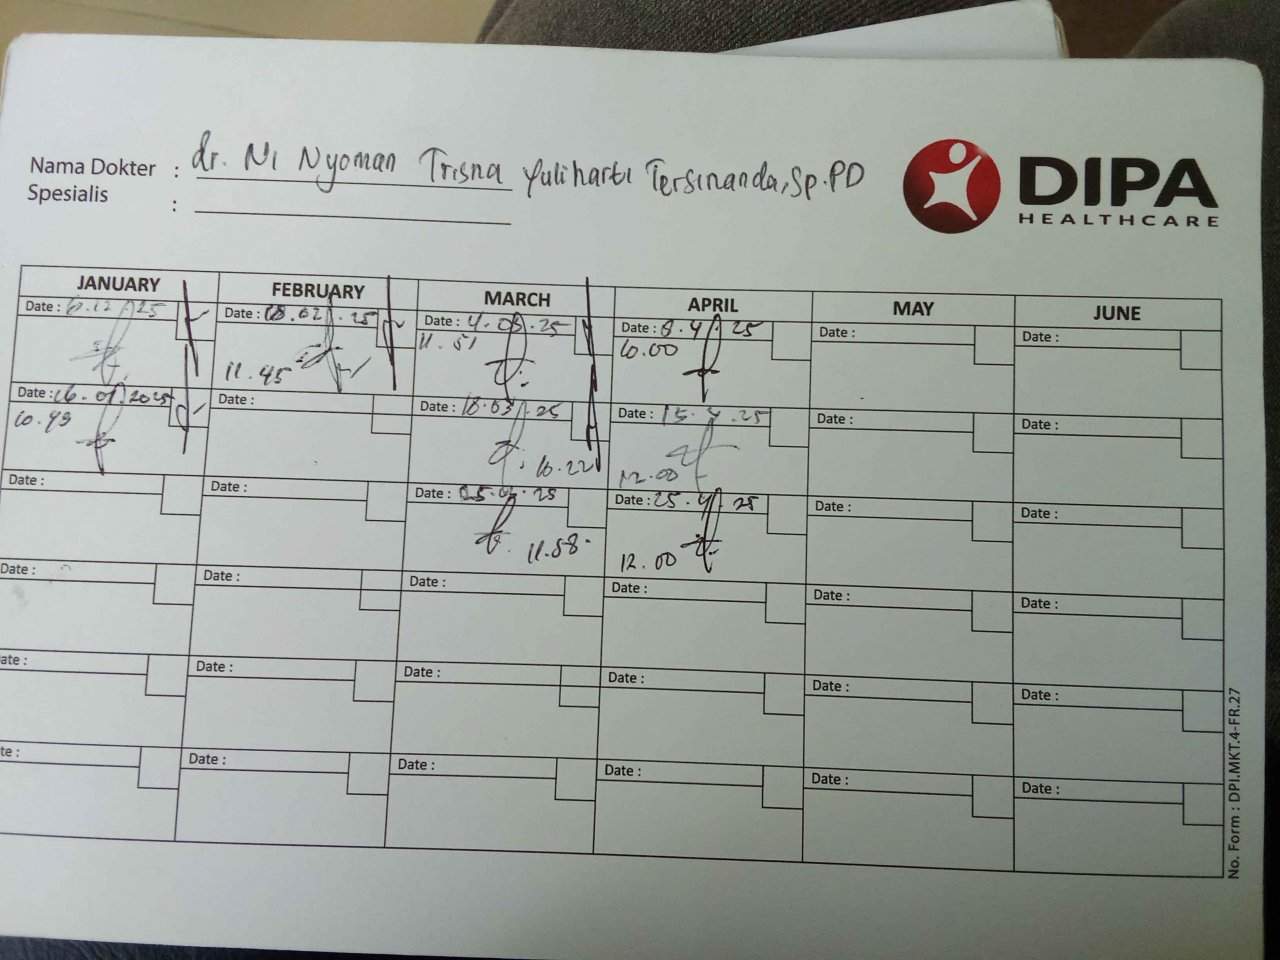 Nama Dokter : dr. Ni Nyoman Trisna Yuliharti Tersinanda, Sp.PD
Spesialis :
DIPA
HEALTHCARE
JANUARY FEBRUARY MARCH APRIL MAY JUNE
Date : Date : 18.02.25 Date : 4.03.25 Date : 8.4.25 Date : Date :
11.45 11.51 10.00
Date : 16.01.2025 Date : Date : 18.03.25 Date : 15.4.25 Date : Date :
10.49 10.22 12.00
Date : Date : Date : 25.03.25 Date : 25.4.25 Date : Date :
11.58 12.00
Date : Date : Date : Date : Date : Date :
ate : Date : Date : Date : Date : Date :
te : Date : Date : Date : Date : Date :
No. Form : DPI.MKT.4-FR.27